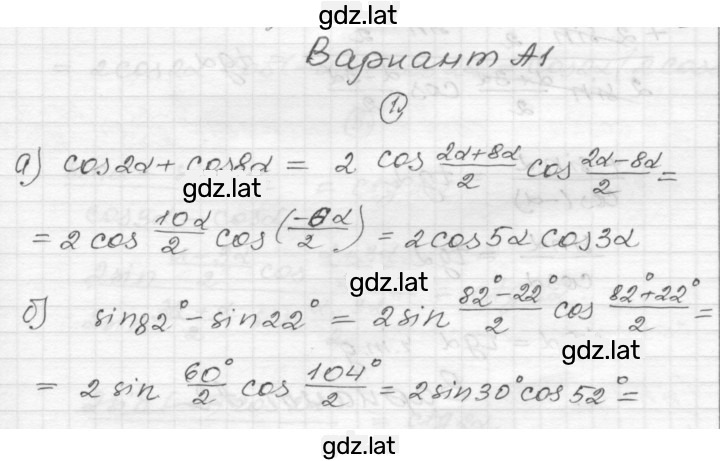 gdz.lat
Вариант А1
1.
а) cos2α + cos8α = 2 cos (2α+8α)/2 cos (2α-8α)/2 =
gdz.lat
= 2 cos 10α/2 cos (-6α/2) = 2cos5α cos3α
gdz.lat
б) sin82° - sin22° = 2sin (82°-22°)/2 cos (82°+22°)/2 =
gdz.lat
= 2 sin 60°/2 cos 104°/2 = 2sin30°cos52° =
gdz.lat